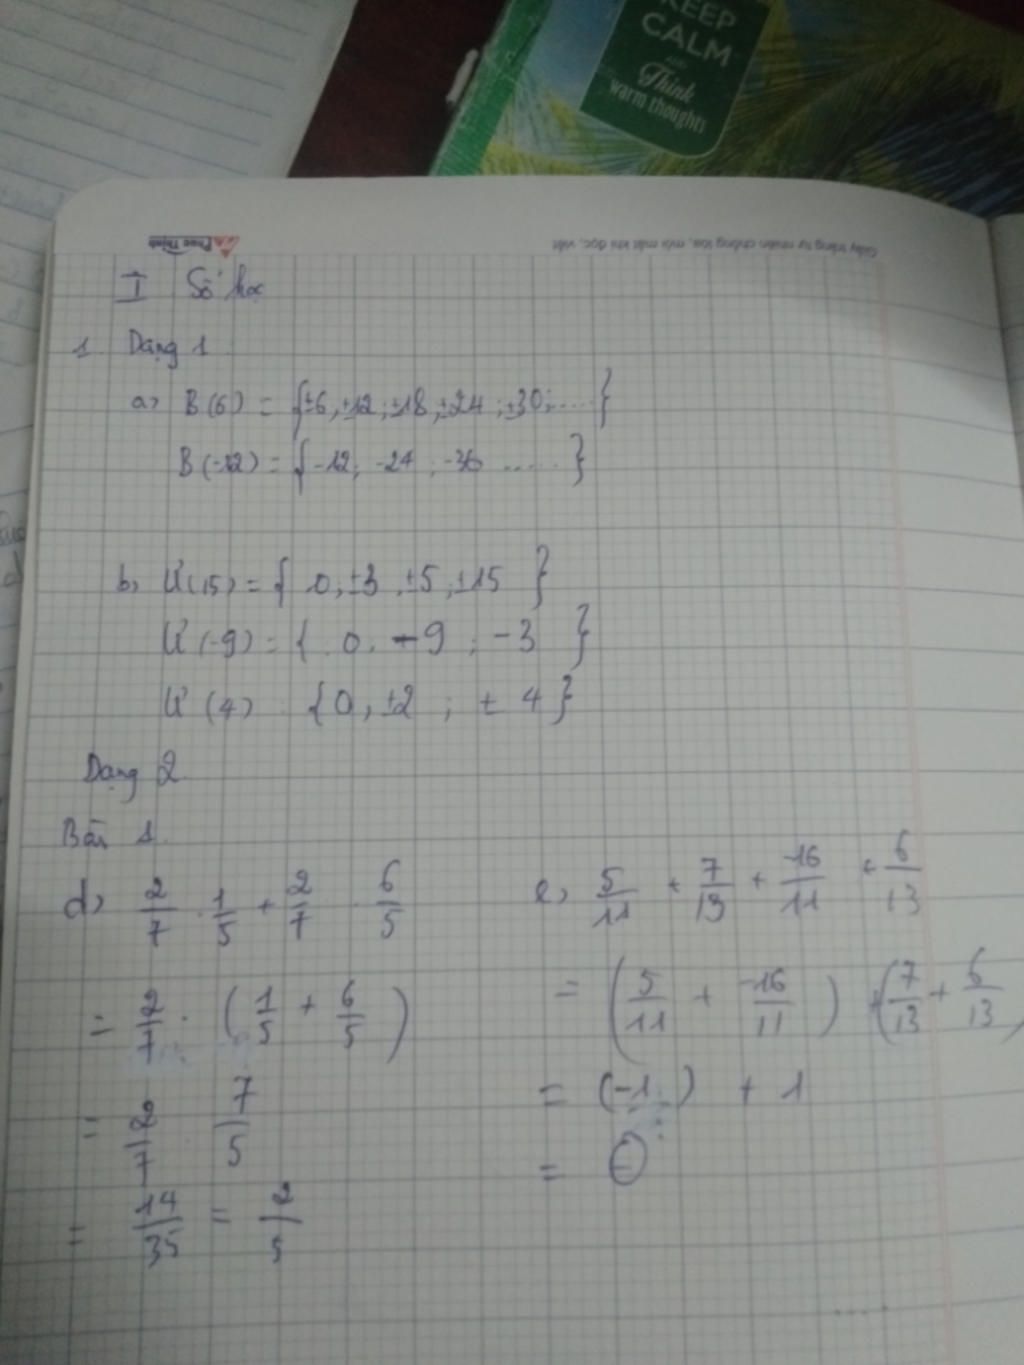 KEEP
CALM
AND
Think
warm thoughts
Phúc Thịnh
Giấy trắng tự nhiên chống lóa, mỏi mắt khi đọc, viết
I Số học
1 Dạng 1
a) B(6) = {±6, ±12; ±18, ±24; ±30; ....}
B(-12) = {-12; -24; -36 .....}
b) Ư(15) = { 0, ±3, ±5, ±15 }
Ư(-9) = { 0. -9 ; -3 }
Ư(4) {0, ±2 ; ± 4}
Dạng 2
Bài 1.
d) 2/7 . 1/5 + 2/7 . 6/5
= 2/7 . (1/5 + 6/5)
= 2/7 7/5
= 14/35 = 2/5
e) 5/11 + 7/13 + -16/11 + 6/13
= (5/11 + -16/11) + (7/13 + 6/13)
= (-1) + 1
= 0